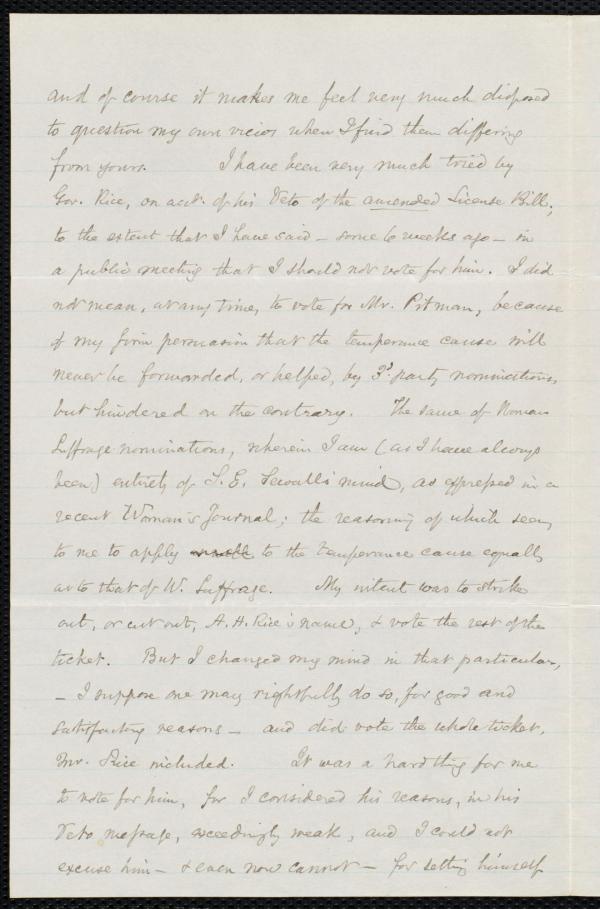 and of course it makes me feel very much disposed
to question my own views when I find them differing
from yours. I have been very much tried by
Gov. Rice, on acct. of his Veto of the amended License Bill;
to the extent that I have said – some 6 weeks ago – in
a public meeting that I should not vote for him. I did
not mean, at any time, to vote for Mr. Pitman, because
of my firm persuasion that the temperance cause will
never be forwarded, or helped, by 3d party nominations,
but hindered on the contrary. The same of Woman
Suffrage nominations, wherein I am (as I have always
been) entirely of S. E. Sewall's mind, as expressed in a
recent Woman's Journal; the reasoning of which seems
to me to apply to the temperance cause equally
as to that of W. Suffrage. My intent was to strike
out, or cut out, A. H. Rice's name, & vote the rest of the
ticket. But I changed my mind in that particular,
– I suppose one may rightfully do so, for good and
satisfactory reasons – and did vote the whole ticket,
Mr. Rice included. It was a hard thing for me
to vote for him, for I considered his reasons, in his
Veto message, exceedingly weak, and I could not
excuse him – & even now cannot – for setting himself